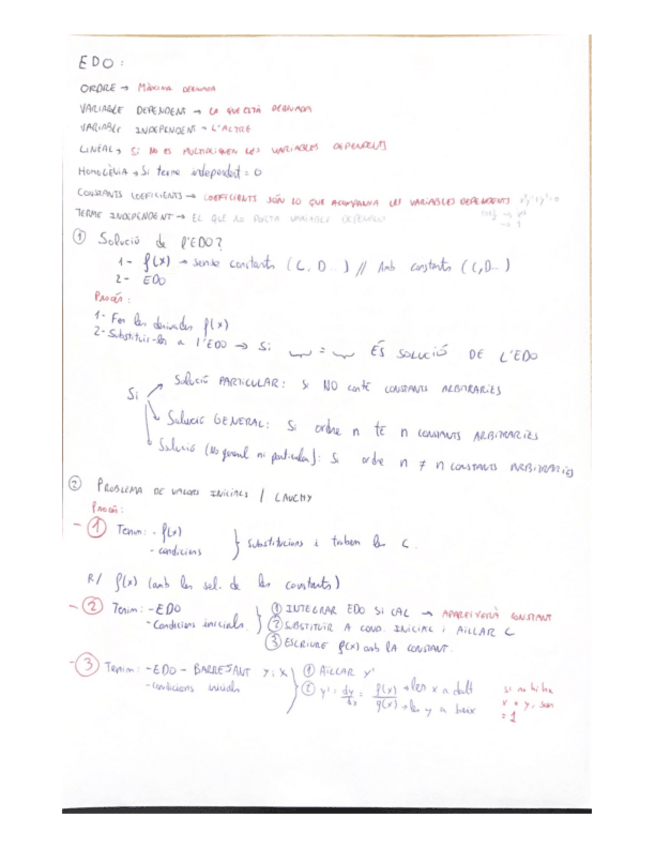 EDO:
ORDRE → MÀXIMA DERIVADA
VARIABLE DEPENDENT → LA QUE ESTÀ DERIVADA
VARIABLE INDEPENDENT → L'ALTRE
LINEAL → SI NO ES MULTIPLIQUEN LES VARIABLES DEPENDENTS
HOMOGÈNIA → Si terme independent = 0
CONSTANTS COEFICIENTS → COEFICIENTS SÓN LO QUE ACOMPANYA LES VARIABLES DEPENDENTS
TERME INDEPENDENT → EL QUE NO PORTA VARIABLE DEPENDENT
① Solució de l'EDO?
1 - f(x) → sense constants (C, D...) // Amb constants (C, D...)
2 - EDO
Procés:
1 - Fer les derivades f(x)
2 - Substituir-les a l'EDO → Si = ÉS SOLUCIÓ DE L'EDO
Si
Solució PARTICULAR: SI NO conté CONSTANTS ARBITRARIES
Solució GENERAL: Si ordre n té n CONSTANTS ARBITRARIES
Solució (No general ni particular): Si ordre n ≠ n CONSTANTS ARBITRARIES
② PROBLEMA DE VALORS INICIALS / CAUCHY
Procés:
- ① Tenim: - f(x)
- condicions
} Substitucions i trobem les C.
R/ f(x) (amb les sol. de les constants)
- ② Tenim: - EDO
- Condicions inicials.
① INTEGRAR EDO SI CAL → APAREIXERÀ CONSTANT
② SUBSTITUIR A COND. INICIAL i AÏLLAR C
③ ESCRIURE f(x) amb LA CONSTANT.
- ③ Tenim: - EDO - BARREJANT y i x
- condicions inicials
① AÏLLAR y'
② y' = dy/dx = f(x)/g(x) → les x a dalt
→ les y a baix
si no hi ha
x o y, son
= 1